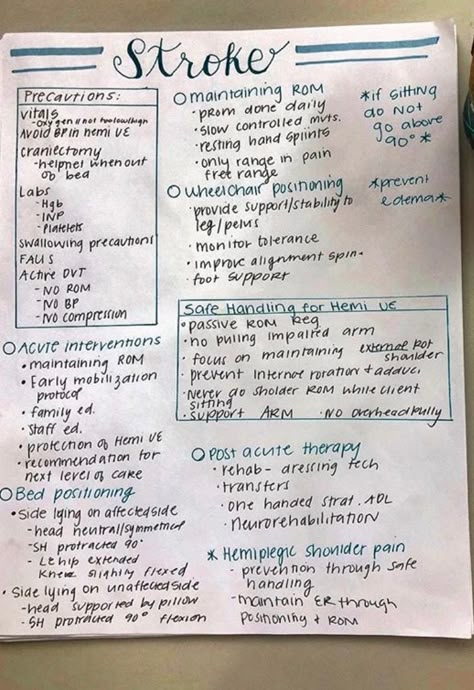 Stroke
Precautions:
Vitals
-Oxygen if not too low/high
AVOID BP in hemi UE
craniectomy
-helmet when out
of bed
Labs
- Hgb
- INP
- Platelets
swallowing precautions
FALLS
Active DVT
- NO ROM
- NO BP
- NO compression
Acute interventions
• maintaining ROM
• Early mobilization
protocol
• family ed.
• Staff ed.
• protection of Hemi UE
• recommendation for
next level of care
Bed positioning
• Side lying on affected side
- head neutral/symmetrical
- SH protracted 90°
- LE hip extended
Knee slightly flexed
• Side lying on unaffected side
- head supported by pillow
- SH protracted 90° flexion
maintaining ROM
• prom done daily
• slow controlled mvts.
• resting hand splints
• only range in pain
free range
*if sitting
do NOT
go above
90°*
Wheelchair positioning
• provide support/stability to
leg/pelvis
• monitor tolerance
• improve alignment spin.
• foot support
*prevent
edema*
Safe Handling for Hemi UE
• passive ROM Reg
• no puling impaired arm
• focus on maintaining external rot
shoulder
• prevent Internal rotation + adduci
• Never do sholder ROM while client
sitting
• support ARM • NO overhead pully
Post acute therapy
• rehab - dressing tech
• transfers
• one handed strat. ADL
• neurorehabilitation
* Hemiplegic shoulder pain
- prevention through safe
handling
- maintain ER through
positioning + ROM